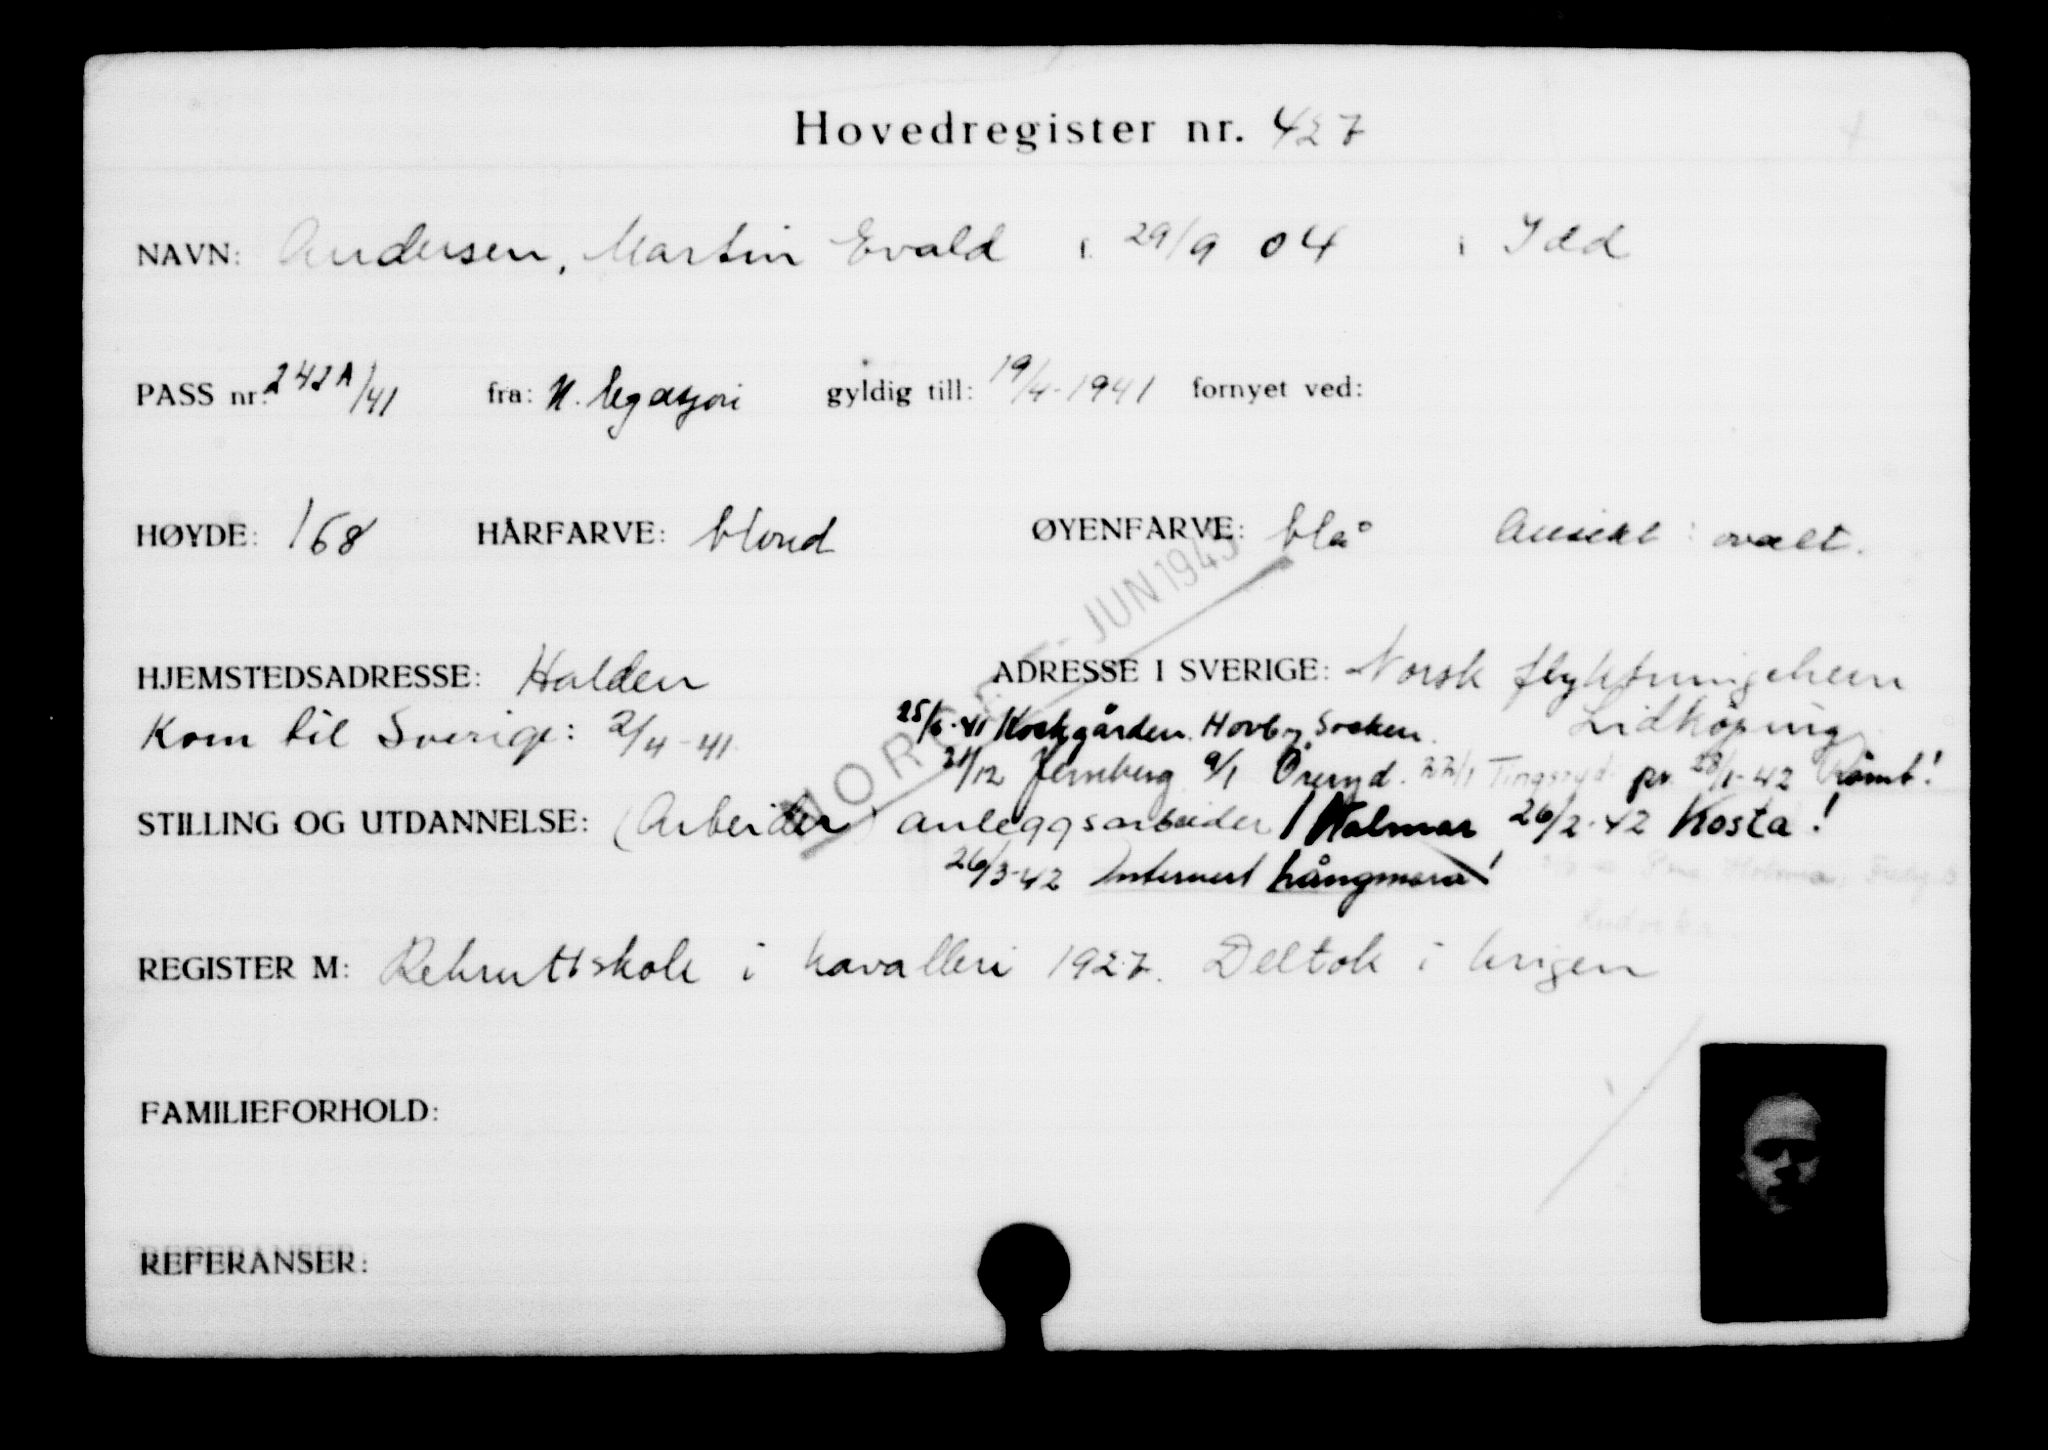 Hovedregister nr. 427
NAVN: Andersen, Martin Evald 29/9 04 i Idd
PASS nr: 242A/41 fra: N. legasjon gyldig till: 19/4-1941 fornyet ved:
HØYDE: 168 HÅRFARVE: blond ØYENFARVE: blå Ansikt: ovalt.
JUN 1945
NORGE
HJEMSTEDSADRESSE: Halden ADRESSE I SVERIGE: Norsk flyktningehem
Lidköping
Kom til Sverige: 2/4-41 25/6-41 Hovby Socken.
31/12 Jernberg 9/1 Öreryd. 22/1 Tingsryd pr. 28/1-42 Römt!
STILLING OG UTDANNELSE: (Arbeider) anleggsarbeider / Kalmar 26/2-42 Kosta!
26/3-42 Internert Långmora!
REGISTER M: Rekruttskole i kavalleri 1927. Deltok i krigen
FAMILIEFORHOLD:
REFERANSER: